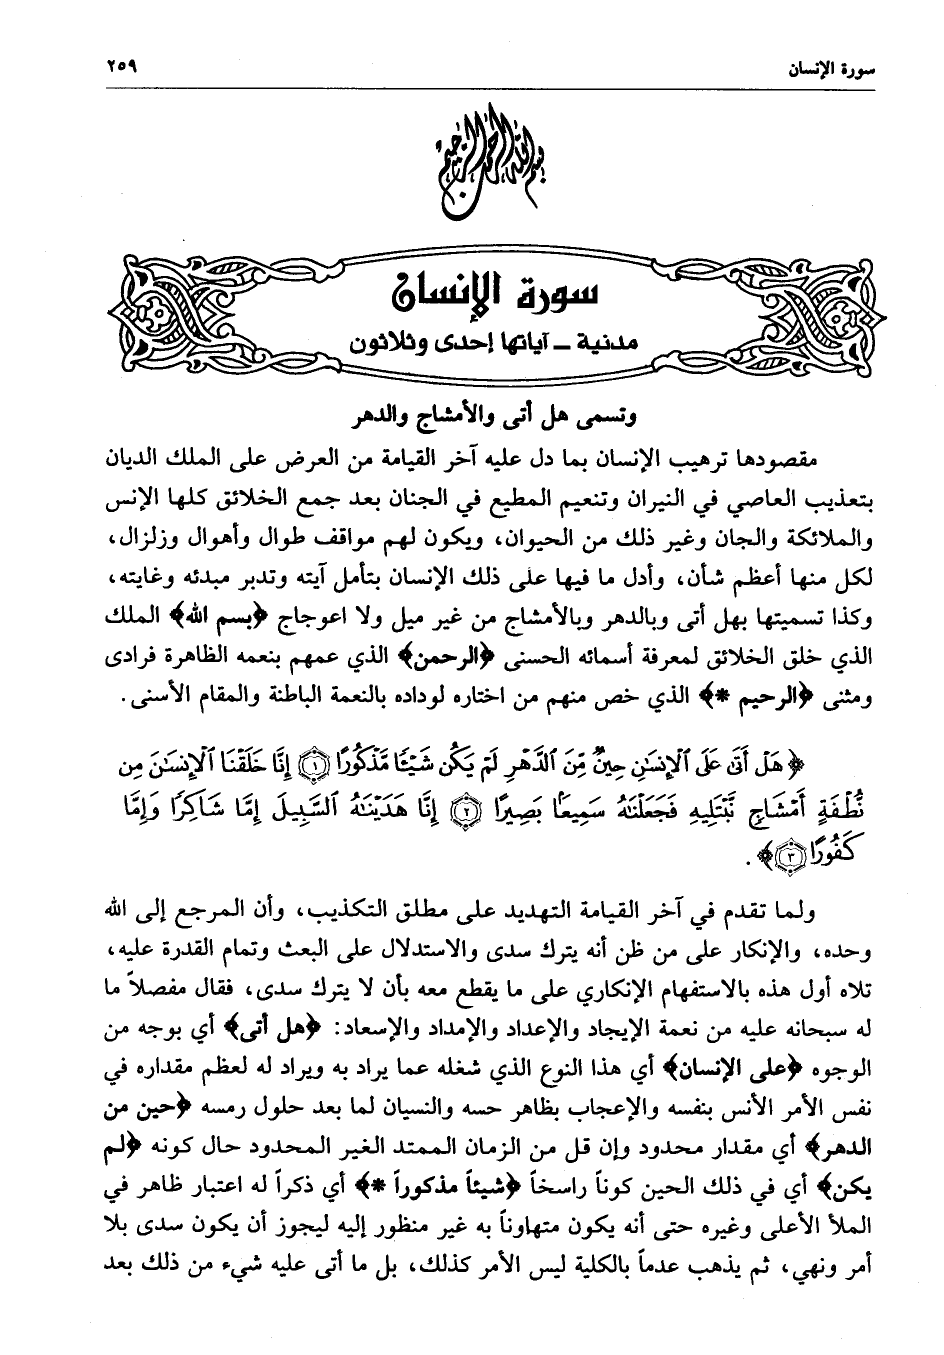 سورة الإنسان ٢٥٩
بسم الله الرحمن الرحيم
سورة الإنسان
مدنية ــ آياتها إحدى وثلاثون
وتسمى هل أتى والأمشاج والدهر
مقصودها ترهيب الإنسان بما دل عليه آخر القيامة من العرض على الملك الديان
بتعذيب العاصي في النيران وتنعيم المطيع في الجنان بعد جمع الخلائق كلها الإنس
والملائكة والجان وغير ذلك من الحيوان، ويكون لهم مواقف طوال وأهوال وزلزال،
لكل منها أعظم شأن، وأدل ما فيها على ذلك الإنسان بتأمل آيته وتدبر مبدئه وغايته،
وكذا تسميتها بهل أتى وبالدهر وبالأمشاج من غير ميل ولا اعوجاج ﴿بسم الله﴾ الملك
الذي خلق الخلائق لمعرفة أسمائه الحسنى ﴿الرحمن﴾ الذي عمهم بنعمه الظاهرة فرادى
ومثنى ﴿الرحيم *﴾ الذي خص منهم من اختاره لوداده بالنعمة الباطنة والمقام الأسنى.
﴿هَلْ أَتَىٰ عَلَى ٱلْإِنسَٰنِ حِينٌ مِّنَ ٱلدَّهْرِ لَمْ يَكُن شَيْـًٔا مَّذْكُورًا ۝١ إِنَّا خَلَقْنَا ٱلْإِنسَٰنَ مِن
نُّطْفَةٍ أَمْشَاجٍ نَّبْتَلِيهِ فَجَعَلْنَٰهُ سَمِيعًۢا بَصِيرًا ۝٢ إِنَّا هَدَيْنَٰهُ ٱلسَّبِيلَ إِمَّا شَاكِرًا وَإِمَّا
كَفُورًا ۝٣﴾.
ولما تقدم في آخر القيامة التهديد على مطلق التكذيب، وأن المرجع إلى الله
وحده، والإنكار على من ظن أنه يترك سدى والاستدلال على البعث وتمام القدرة عليه،
تلاه أول هذه بالاستفهام الإنكاري على ما يقطع معه بأن لا يترك سدى، فقال مفصلاً ما
له سبحانه عليه من نعمة الإيجاد والإعداد والإمداد والإسعاد: ﴿هل أتى﴾ أي بوجه من
الوجوه ﴿على الإنسان﴾ أي هذا النوع الذي شغله عما يراد به ويراد له لعظم مقداره في
نفس الأمر الأنس بنفسه والإعجاب بظاهر حسه والنسيان لما بعد حلول رمسه ﴿حين من
الدهر﴾ أي مقدار محدود وإن قل من الزمان الممتد الغير المحدود حال كونه ﴿لم
يكن﴾ أي في ذلك الحين كوناً راسخاً ﴿شيئاً مذكوراً *﴾ أي ذكراً له اعتبار ظاهر في
الملأ الأعلى وغيره حتى أنه يكون متهاوناً به غير منظور إليه ليجوز أن يكون سدى بلا
أمر ونهي، ثم يذهب عدماً بالكلية ليس الأمر كذلك، بل ما أتى عليه شيء من ذلك بعد